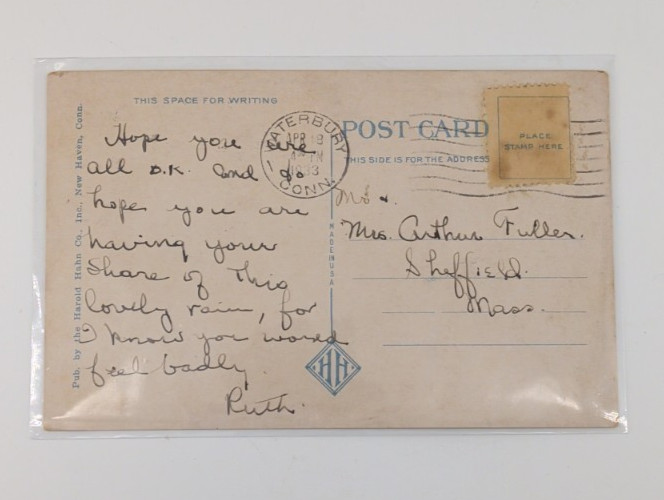 THIS SPACE FOR WRITING
Hope you are
all O.K. and do
hope you are
having your
share of this
lovely rain, for
I know you would
feel badly.
Ruth.
Pub. by the Harold Hahn Co. Inc., New Haven, Conn.
WATERBURY
APR
CONN.
POST CARD
THIS SIDE IS FOR THE ADDRESS
PLACE
STAMP HERE
MADE IN USA
Mr &
Mrs. Arthur Fuller.
Sheffield.
Mass.
HH